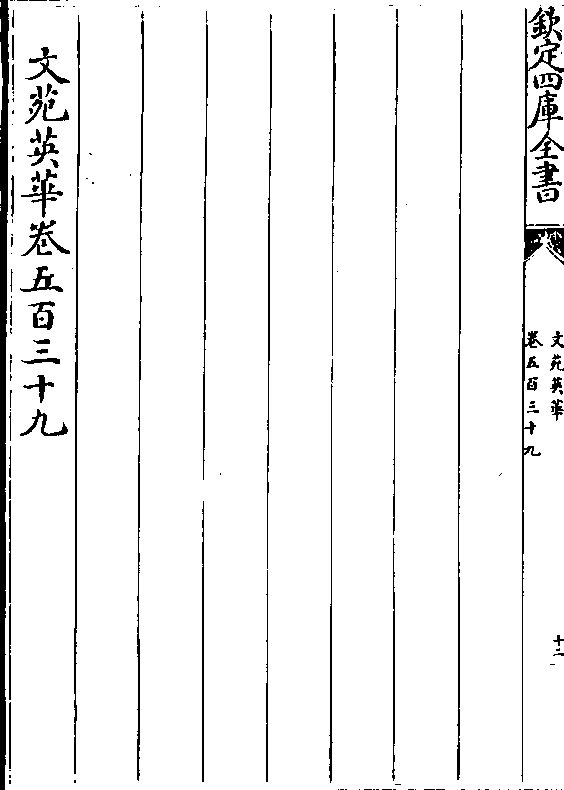 欽定四庫全書
文苑英華
卷五百三十九
十二
文苑英華卷五百三十九